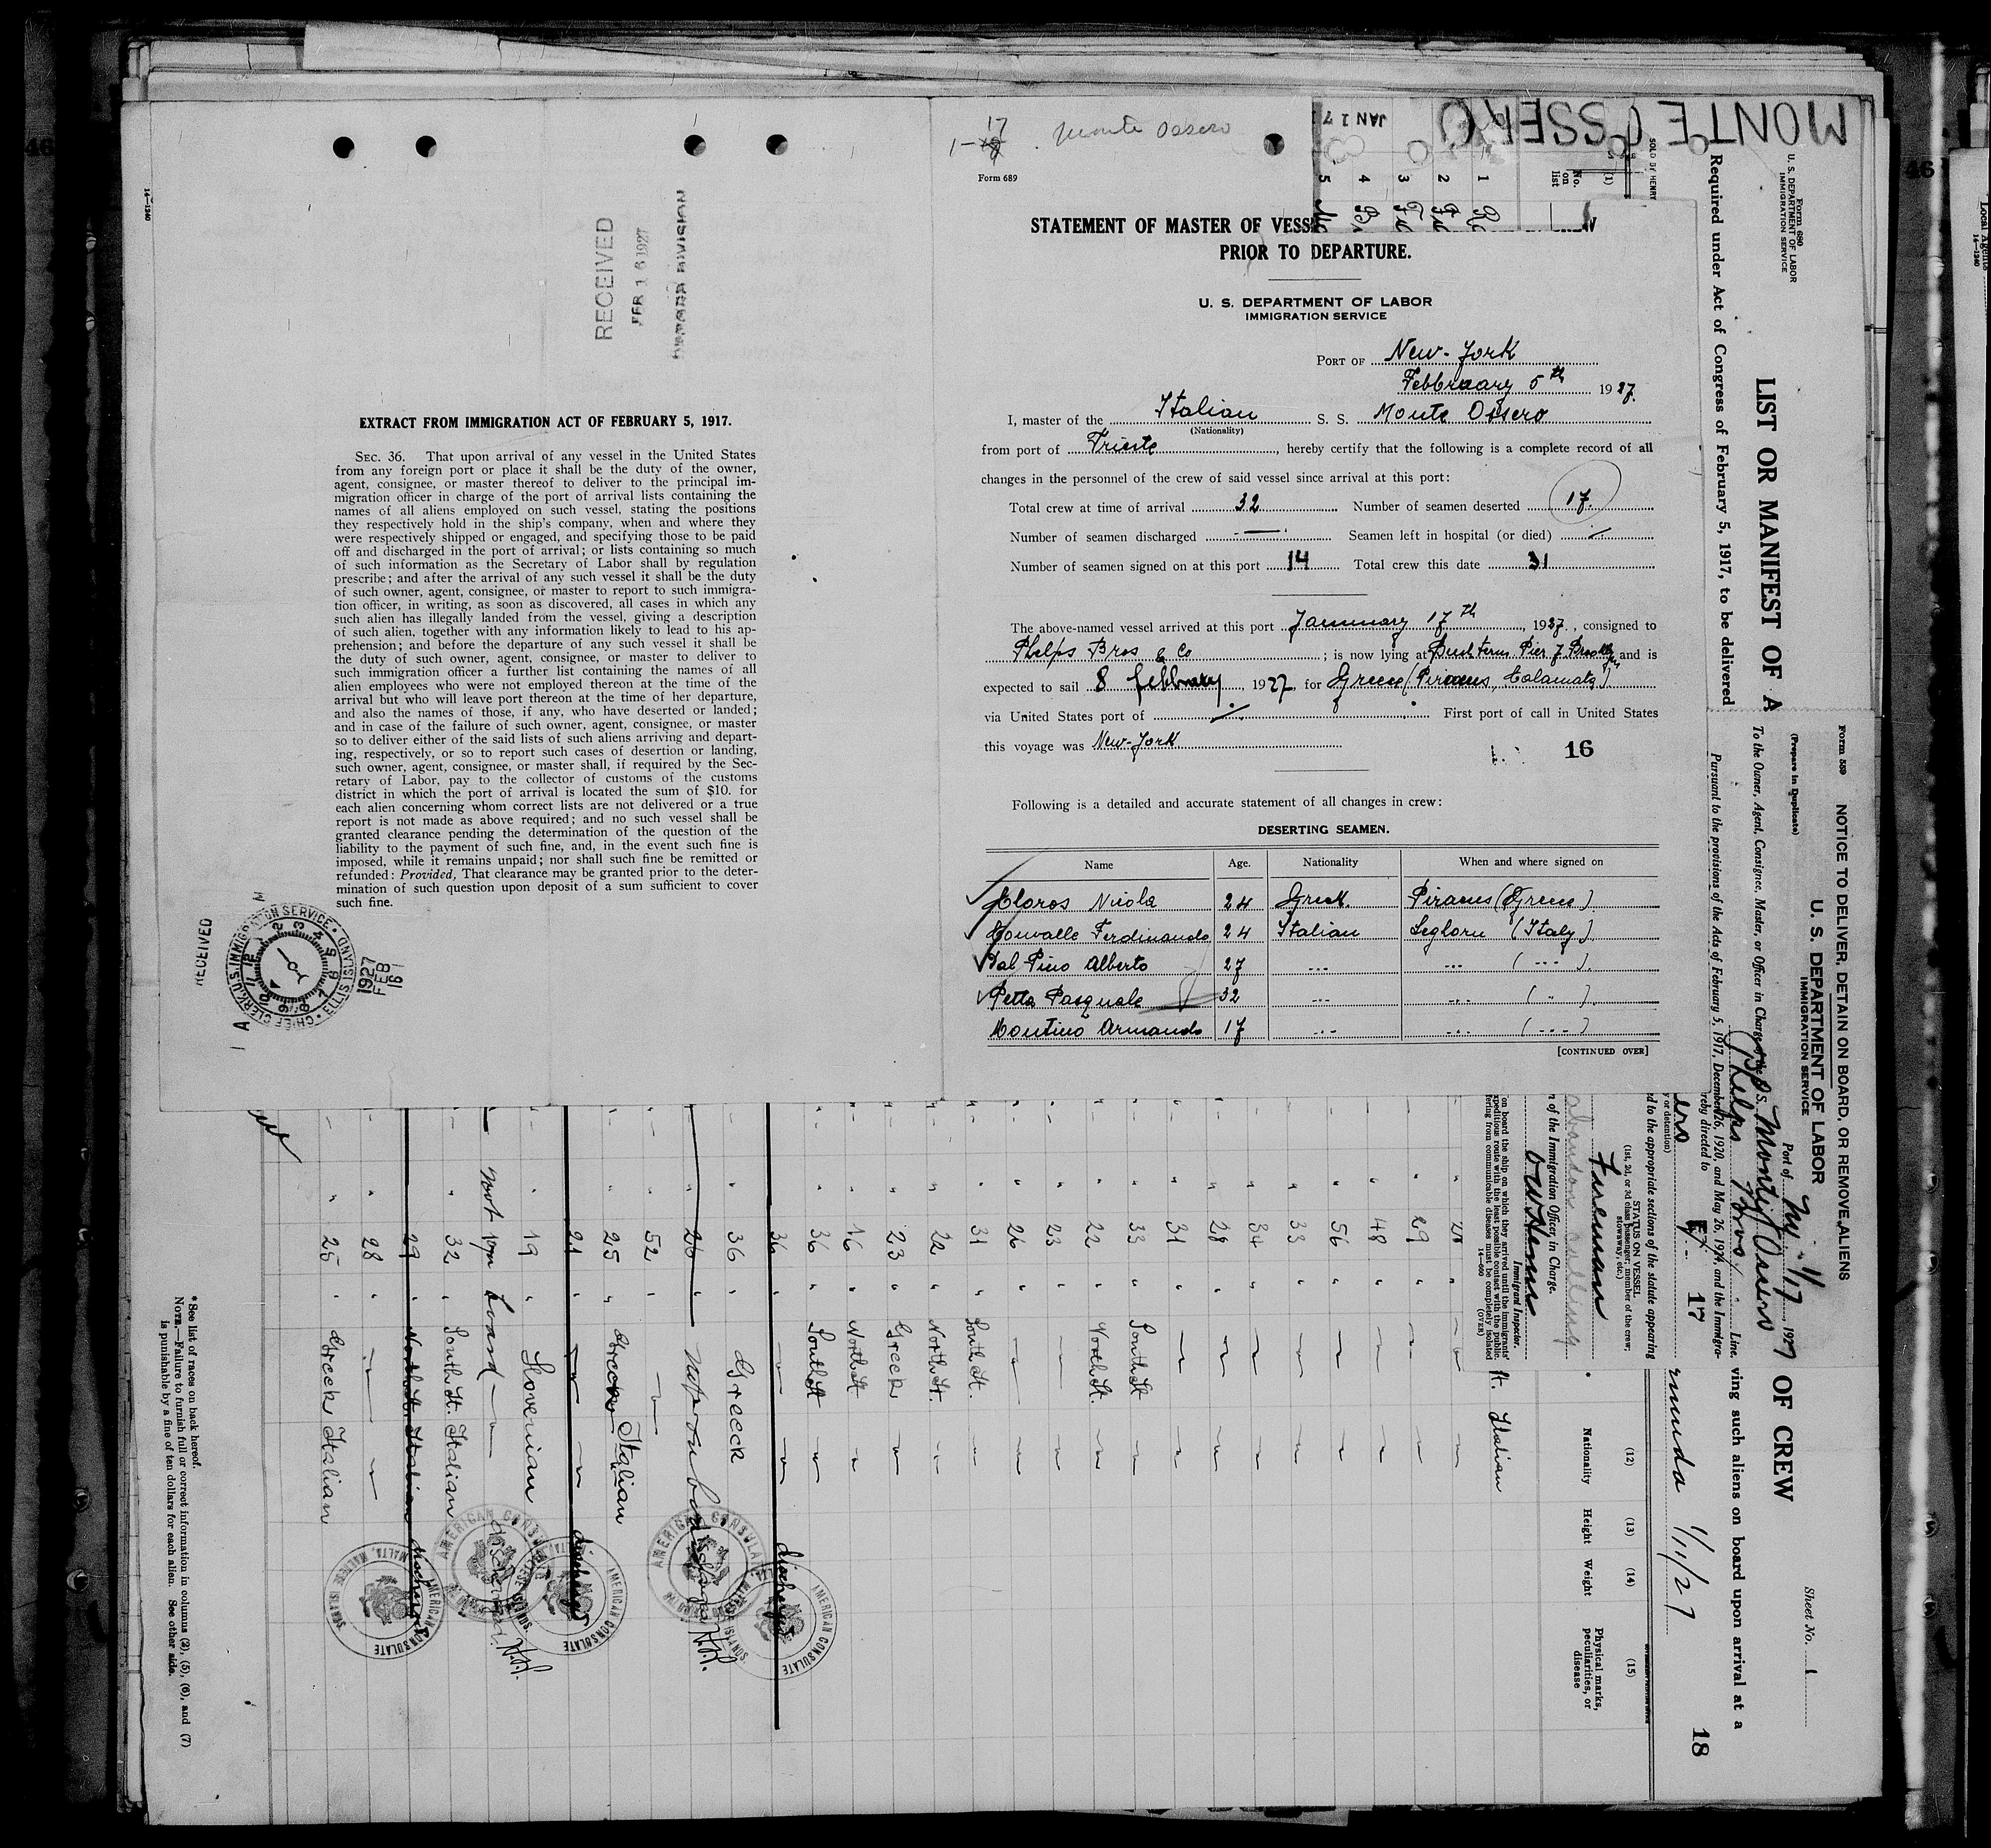 EXTRACT FROM IMMIGRATION ACT OF FEBRUARY 5, 1917.
SEC. 36. That upon arrival of any vessel in the United States
from any foreign port or place it shall be the duty of the owner,
agent, consignee, or master thereof to deliver to the principal im-
migration officer in charge of the port of arrival lists containing the
names of all aliens employed on such vessel, stating the positions
they respectively hold in the ship's company, when and where they
were respectively shipped or engaged, and specifying those to be paid
off and discharged in the port of arrival; or lists containing so much
of such information as the Secretary of Labor shall by regulation
prescribe; and after the arrival of any such vessel it shall be the duty
of such owner, agent, consignee, or master to report to such immigra-
tion officer, in writing, as soon as discovered, all cases in which any
such alien has illegally landed from the vessel, giving a description
of such alien, together with any information likely to lead to his ap-
prehension; and before the departure of any such vessel it shall be
the duty of such owner, agent, consignee, or master to deliver to
such immigration officer a further list containing the names of all
alien employees who were not employed thereon at the time of the
arrival but who will leave port thereon at the time of her departure,
and also the names of those, if any, who have deserted or landed;
and in case of the failure of such owner, agent, consignee, or master
so to deliver either of the said lists of such aliens arriving and depart-
ing, respectively, or so to report such cases of desertion or landing,
such owner, agent, consignee, or master shall, if required by the Sec-
retary of Labor, pay to the collector of customs of the customs
district in which the port of arrival is located the sum of $10. for
each alien concerning whom correct lists are not delivered or a true
report is not made as above required; and no such vessel shall be
granted clearance pending the determination of the question of the
liability to the payment of such fine, and, in the event such fine is
imposed, while it remains unpaid; nor shall such fine be remitted or
refunded: Provided, That clearance may be granted prior to the deter-
mination of such question upon deposit of a sum sufficient to cover
such fine.
RECEIVED
FEB 16 1927
RECEIVED
CHIEF CLERK, U.S. IMMIGRATION SERVICE
ELLIS ISLAND
1927
FEB
16
14-1240
17
Monte Ossero
Form 689
STATEMENT OF MASTER OF VESS
PRIOR TO DEPARTURE.
U. S. DEPARTMENT OF LABOR
IMMIGRATION SERVICE
PORT OF New-York
Febbruary 5th 1927.
I, master of the Italian S. S. Monte Ossero
(Nationality)
from port of Trieste, hereby certify that the following is a complete record of all
changes in the personnel of the crew of said vessel since arrival at this port:
Total crew at time of arrival 32 Number of seamen deserted 17.
Number of seamen discharged — Seamen left in hospital (or died) ./.
Number of seamen signed on at this port 14 Total crew this date 31
The above-named vessel arrived at this port January 17th, 1927, consigned to
Phelps Bros & Co; is now lying at Bush Term. Pier 7 Brooklyn and is
expected to sail 8 febbruary, 1927, for Greece (Piraeus, Calamata)
via United States port of ./. First port of call in United States
this voyage was New-York
16
Following is a detailed and accurate statement of all changes in crew:
DESERTING SEAMEN.
Name Age. Nationality When and where signed on
Cloros Nicola 24 Greek. Piraeus (Greece)
Ferdinando 24 Italian Leghorn (Italy)
Dal Pino Alberto 27 --- --- ( --- ).
Petta Pasquale 32 --- --- ( " ).
Montino Armando 17 --- --- ( --- )
[CONTINUED OVER]
MONTE OSSERO
JAN 17
SOLD BY HENRY
(1)
No.
on
list
1
2
3
4
5
Form 680
U. S. DEPARTMENT OF LABOR
IMMIGRATION SERVICE
LIST OR MANIFEST OF A
OF CREW
Required under Act of Congress of February 5, 1917, to be delivered
ving such aliens on board upon arrival at a
Sheet No. 1
18
1/11/27
Form 559
(Prepare in Duplicate)
NOTICE TO DELIVER, DETAIN ON BOARD, OR REMOVE ALIENS
U. S. DEPARTMENT OF LABOR
IMMIGRATION SERVICE
Port of NY 1/17 1927
To the Owner, Agent, Consignee, Master, or Officer in Charge of the S. S. Monte Ossero
Phelps Bros Line.
Pursuant to the provisions of the Acts of February 5, 1917, December 26, 1920, and May 26, 1924, and the Immigra-
reby directed to
17
y or detention)
d to the appropriate sections of the statute appearing
STATUS ON VESSEL
(1st, 2d, or 3d class passenger; member of the crew;
stowaway, etc.)
Fireman
n of the Immigration Officer in Charge.
Immigrant Inspector.
on board the ship on which they arrived until the immigrants'
xpeditious route with the least possible contact with the public.
fering from communicable diseases must be completely isolated
14-660 (OVER)
(12) (13) (14) (15)
Nationality Height Weight Physical marks,
peculiarities, or
disease
It. Italian
29
48
56
33
34
28
31
33 South It
22 North It.
23
26
31 South It.
22 North It.
23 Greek
16 North It
36 South It
36 discharged
36 Greek
26 not on board
52
25 Greek Italian
21 discharged
19 Slovenian
not on board
32 South It. Italian
29 North It. Italian discharged
28
25 Greek Italian
AMERICAN CONSULATE
MALTA, MALTESE ISLANDS
* See list of races on back hereof.
NOTE.—Failure to furnish full or correct information in columns (2), (5), (6), and (7)
is punishable by a fine of ten dollars for each alien. See other side.